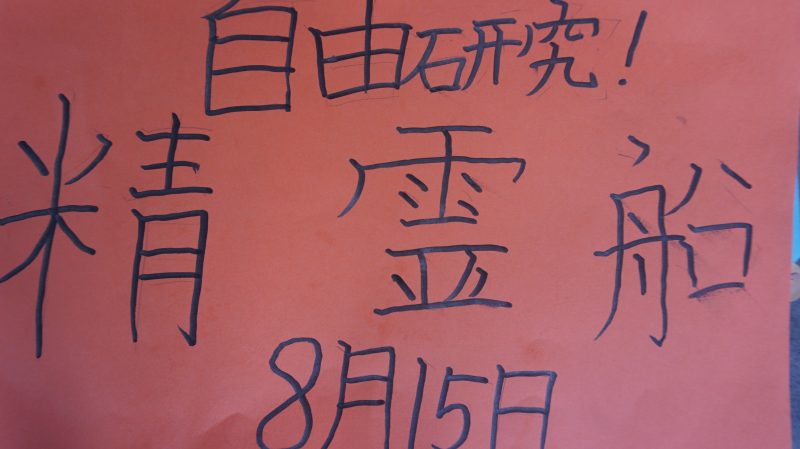 自由研究!
精霊船
8月15日